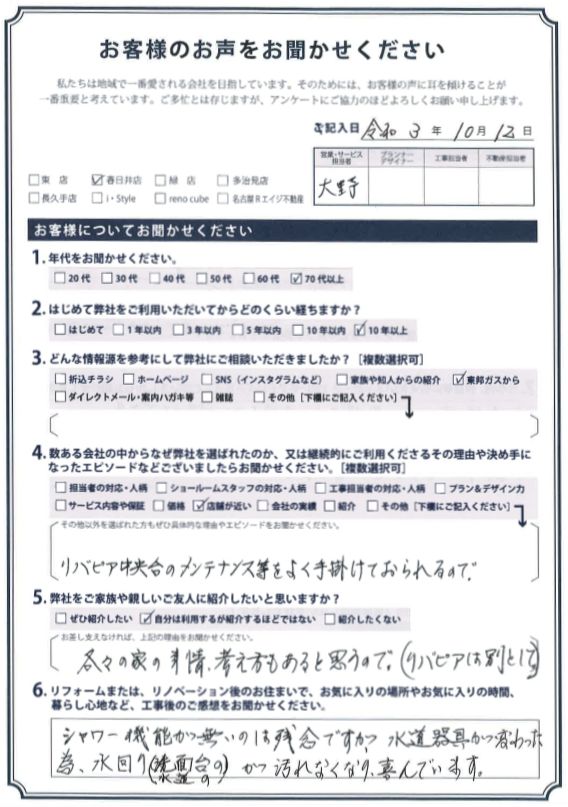 お客様のお声をお聞かせください
私たちは地域で一番愛される会社を目指しています。そのためには、お客様の声に耳を傾けることが
一番重要と考えています。ご多忙とは存じますが、アンケートにご協力のほどよろしくお願い申し上げます。
ご記入日 令和 3 年 10 月 12 日
営業・サービス担当者 プランナー・デザイナー 工事担当者 不動産担当者
大野
□東 店 ☑春日井店 □緑 店 □多治見店
□長久手店 □i・Style □reno cube □名古屋Rエイジ不動産
お客様についてお聞かせください
1. 年代をお聞かせください。
□20代 □30代 □40代 □50代 □60代 ☑70代以上
2. はじめて弊社をご利用いただいてからどのくらい経ちますか?
□はじめて □1年以内 □3年以内 □5年以内 □10年以内 ☑10年以上
3. どんな情報源を参考にして弊社にご相談いただきましたか?[複数選択可]
□折込チラシ □ホームページ □SNS(インスタグラムなど) □家族や知人からの紹介 ☑東邦ガスから
□ダイレクトメール・案内ハガキ等 □雑誌 □その他[下欄にご記入ください]
4. 数ある会社の中からなぜ弊社を選ばれたのか、又は継続的にご利用くださるその理由や決め手に
なったエピソードなどございましたらお聞かせください。[複数選択可]
□担当者の対応・人柄 □ショールームスタッフの対応・人柄 □工事担当者の対応・人柄 □プラン&デザイン力
□サービス内容や保証 □価格 ☑店舗が近い □会社の実績 □紹介 □その他[下欄にご記入ください]
その他以外を選ばれた方もぜひ具体的な理由やエピソードをお聞かせください。
リバピア中央台のメンテナンス等をよく手掛けておられるので。
5. 弊社をご家族や親しいご友人に紹介したいと思いますか?
□ぜひ紹介したい ☑自分は利用するが紹介するほどではない □紹介したくない
お差し支えなければ、上記の理由をお聞かせください。
各々の家の事情、考え方もあると思うので。(リバピアは別として)
6. リフォームまたは、リノベーション後のお住まいで、お気に入りの場所やお気に入りの時間、
暮らし心地など、工事後のご感想をお聞かせください。
シャワー機能が無いのは残念ですが、水道器具が変わった
為、水回り(洗面台の水道の)が汚れなくなり、喜んでいます。